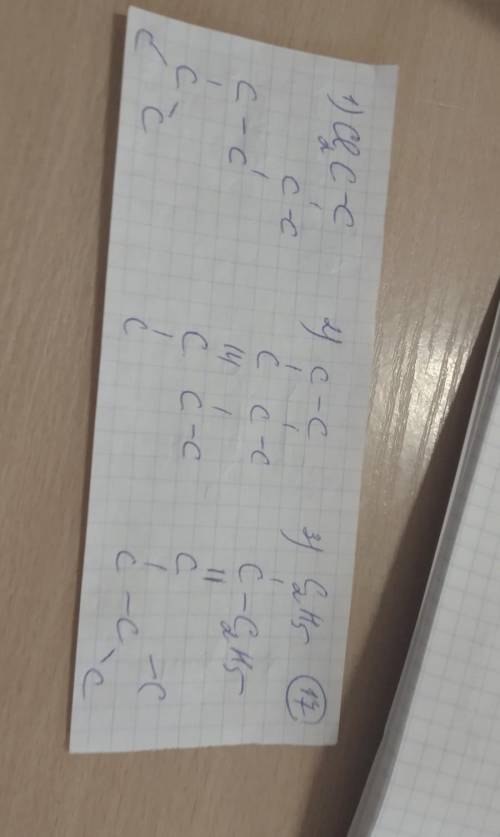 1) Cl₂C-C
|
C-C
|
C-C
|
C
/ \
C C
2) C-C
| |
C C-C
||| |
C C-C
|
C
3) C₂H5 17
|
C-C₂H5
||
C
|
C-C-C
\
C